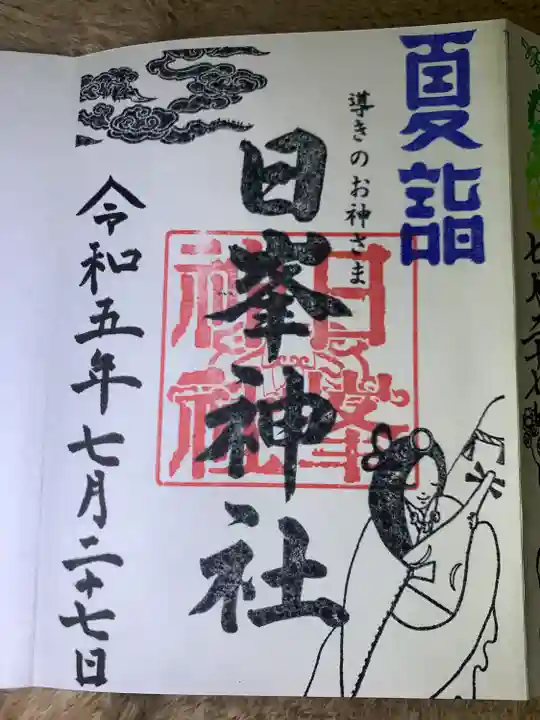 夏詣
導きのお神さま
日峯神社
日峯
神社
令和五年七月二十七日
七月二十七